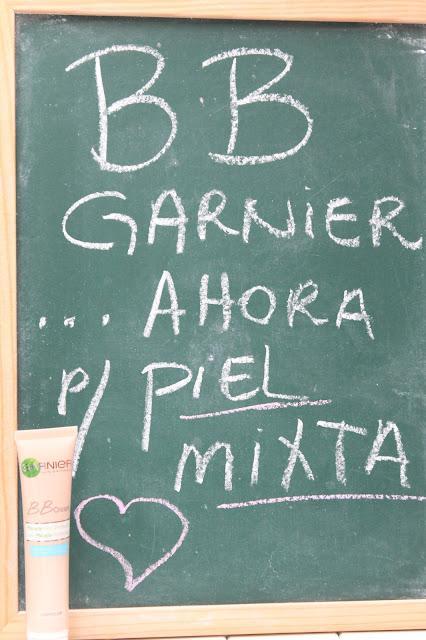 BB
GARNiER
... AHORA
p/ PiEL
MiXTA
GARNIER
BBCream